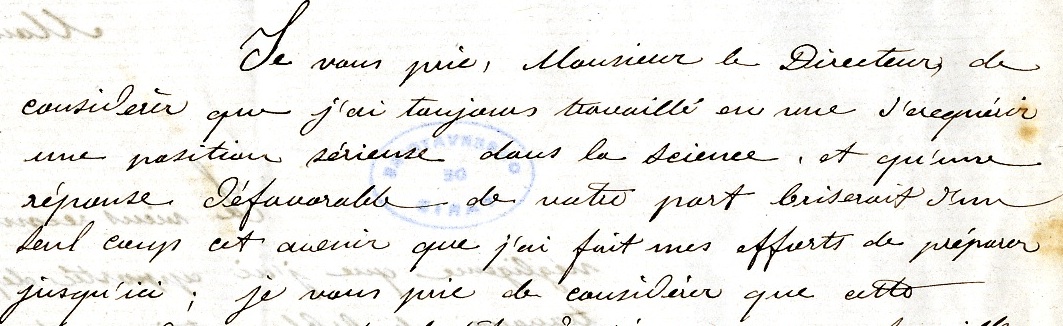 Je vous prie, Monsieur le Directeur, de
considérer que j'ai toujours travaillé en vue d'acquérir
une position sérieuse dans la science, et qu'une
réponse défavorable de votre part briserait d'un
seul coup cet avenir que j'ai fait mes efforts de préparer
jusqu'ici ; je vous prie de considérer que cette